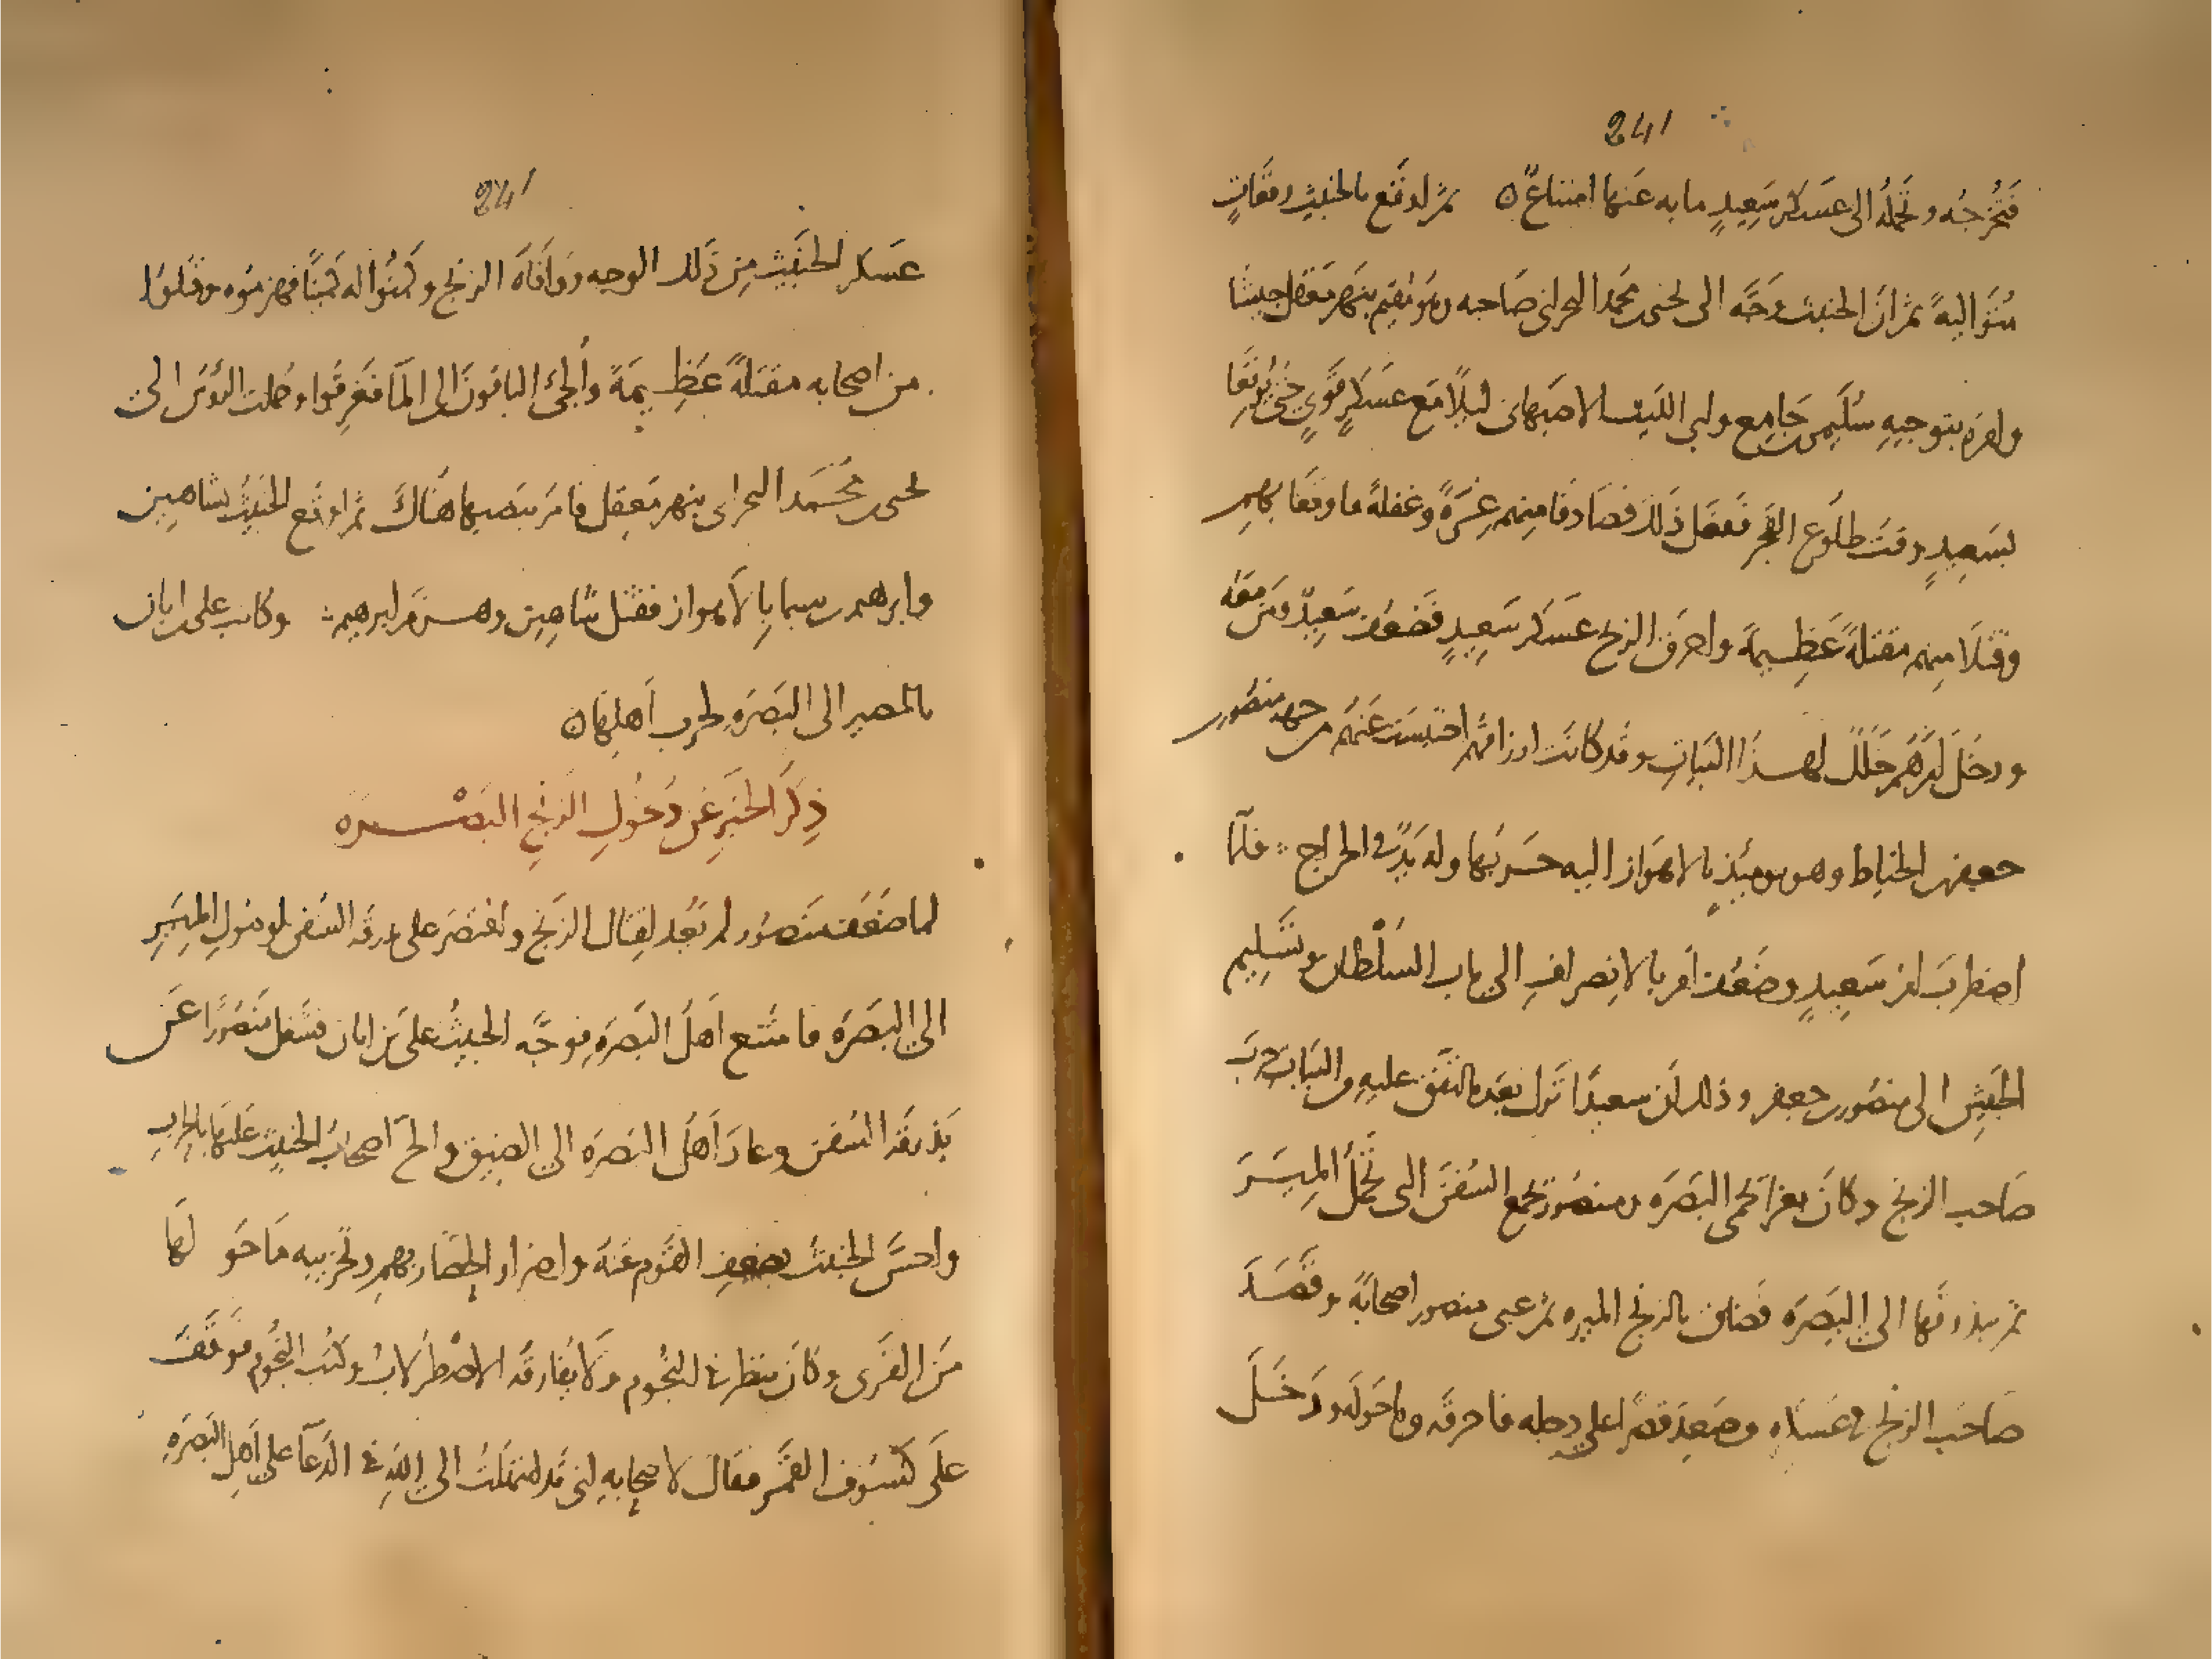 241
فتُخرجُه وتحملُه الى عسكر سَعِيدٍ ما به عَنها امتناعٌ ثم اوقَع بالخبيث وقعاتٍ
مُتوَاليةً ثم ان الخبيث وَجّه الى يحيى بن محمد البحراني صَاحبه وهو مُقيم بنهر مَعقل جيشا
وامره بتوجيهِ سُلَيمن بن جَامِع وابي الليث الاصبهاني ليلًا مَع عسكرٍ قوىٍ حتى يُوقعَا
بسَعِيدٍ وقت طلُوع الفجر ففعَل ذَلك فصَادفَا منهم غِرّةً وغفلةً فاوقعَا بهم
وقتلَا مِنهم مقتلةً عَظِيمةً واحرق الزنج عسكر سَعِيدٍ فضعُف سَعِيدٌ ومَن مَعَه
ودخَل امرَهم خَلَلٌ لهذا البَيَاتِ وقد كانت ارزاقُهم احتبست عَنهُم من جهة منصُور بن
جعفر الخياط وهو يوميئذٍ بالاهوَاز اليه حَربُها وله يَدٌ في الخراج فلما
اضطربَ امر سَعِيدٍ وضَعُف اُمر بالانِصرافِ الى باب السُلْطان وتَسْلِيم
الجَيشِ الى منصُور بن جعفر وذلك اَن سعيدًا تَرك بعَد ما اتفق عليهِ من البَيَات حربَ
صَاحب الزنج وكانَ بغرا يَحمى البَصَره ومنصُور يجمع السُفنَ التى تَحمل المِيَرَ
ثم يبذرقها الى البَصَره فضاق بالزنج الميره ثم عبى منصور اصحابَهُ وقَصَدَ
صَاحَب الزنج في عسكره وصَعِدَ قصرًا على دجله فاحرقه وما حَولَه ودَخَلَ
241
عسكر الخَبِيث مِن ذَلك الوجه ووَافَاهُ الزنج وكَمنُوا له كَمينًا فهزمُوه وقتَلوُا
من اصحابه مقتلةً عَظِيمَةً وأُلجئ الباقونَ الى المَا فغَرِقُوا وحُملت الرؤُس الى
يحيى بن مُحَمَد البحرانى بنهر مَعِقِل فامَر بنصبها هُنَاكَ ثم اوقَع الخبيثُ بشاهِين
وابرهيم بن سيما بالاهواز فقتل شَاهِين وهزمَ ابرهيم وكاتب على بن ابان
بالمصير الى البَصَرهِ لحرب اَهلِهَا
ذِكَرُ الخبَرِ عَن دُخُولِ الزَنجِ البَصْرَه
لما ضَعُف منصُور لم يَعُد لقِتال الزنج واقتصَرَ على بذرقه السفن لوصُولِ المِيَرِ
الى البَصَرَه فامتنع اَهلُ البَصَرَهِ فوجَّه الخبيثُ على بن ابان فشغل مَنصُورًا عَن
بَذرقَه السُفن وعادَ اَهلُ البَصَره الى الضيق والحَّ اَصحابُ الخبيث عليها بالحربِ
واحسَّ الخبيثُ بضعفِ القَوم عَنهُ واضرار الحِصَار بهم وتخريبه مَا حَولَهَا
مَن القُرَى وكانَ ينظر في النجُوم ولا يُفارقه الاصْطِرلابُ وكتب النجُوم فوقَفَ
علَى كُسُوف القَمَر فقال لاصحَابِهِ انى قد ابتهلتُ الى اللهِ في الدُعَآ على اَهِل البَصَرهِ